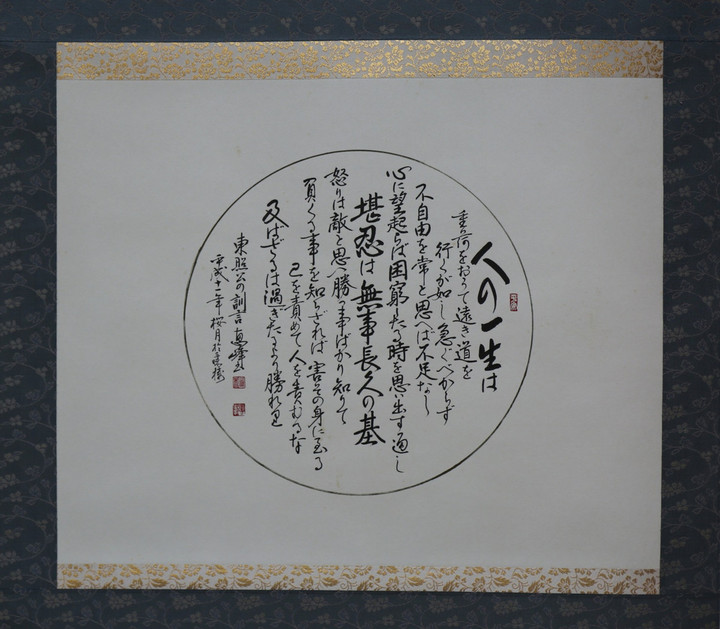 人の一生は
重荷をおうて遠き道を
行くが如し急ぐべからず
不自由を常と思へば不足なし
心に望起らば困窮したる時を思ひ出す遍し
堪忍は無事長久の基
怒りは敵と思へ勝つ事ばかり知りて
負くる事を知らざれば害その身に至る
己を責めて人を責むるな
及ばざるは過ぎたるより勝れり
東照公の訓言
平成十一年桜月於